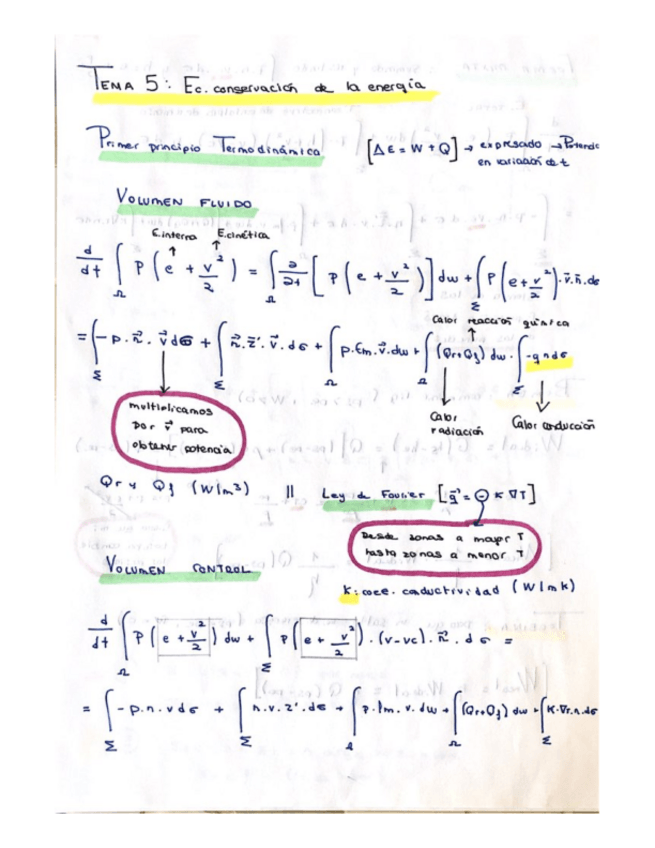 TEMA 5: Ec. conservación de la energía
Primer principio Termodinámica [ΔE = W + Q] → expresado → Potencia
en variación de t
VOLUMEN FLUIDO
E.interna E.cinética
d/dt ∫_Ω ρ(e + v²/2) = ∫_Ω ∂/∂t [ρ(e + v²/2)] dw + ∫_Σ ρ(e + v²/2)·v⃗·n⃗·dσ
Calor reacción química
= ∫_Σ -p·n⃗·v⃗ dσ + ∫_Σ n⃗·τ'·v⃗·dσ + ∫_Ω ρ·fm·v⃗·dw + ∫_Ω (Qr+Qq) dw · ∫_Σ -q n dσ
multiplicamos
por v⃗ para
obtener potencia
Calor
radiación
Calor conducción
Qr y Qq (W/m³) || Ley de Fourier [q⃗ = - K ∇T]
Desde zonas a mayor T
hasta zonas a menor T
VOLUMEN CONTROL
K: coee. conductividad (W/mk)
d/dt ∫_Ω ρ(e + v²/2) dw + ∫_Σ ρ(e + v²/2)·(v-vc)·n⃗·dσ =
= ∫_Σ -p·n·v dσ + ∫_Σ n·v·τ'·dσ + ∫_Ω ρ·fm·v·dw + ∫_Ω (Qr+Qq) dw + ∫_Σ K·∇T·n·dσ